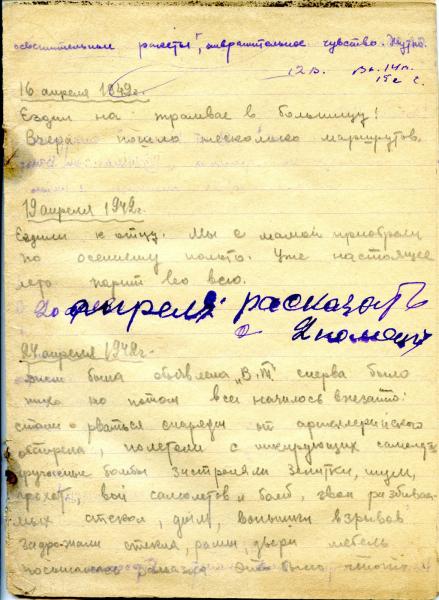 осветительные ракеты", отвратительное чувство. Жутко.
16 апреля 1942г.
Ездил на трамвае в больницу!
Вчера пошло несколько маршрутов.
19 апреля 1942г.
Ездили к отцу. Мы с мамой приобрели
по осеннему пальто. Уже настоящее
лето парит во всю.
20 апреля: расказать
24 апреля 1942г.
Днем была объявлена „В.Т" сперва было
тихо но потом все началось внезапно:
стали рваться снаряды от артиллерийского
обстрела, полетели с пикирующих самолетов
бомбы застреляли зенитки, шум,
грохот, вой самолетов и бомб, звон разбивае-
мых стекол, дым, вспышки взрывов
задрожали стекла, рамы, двери мебель
посыпалась